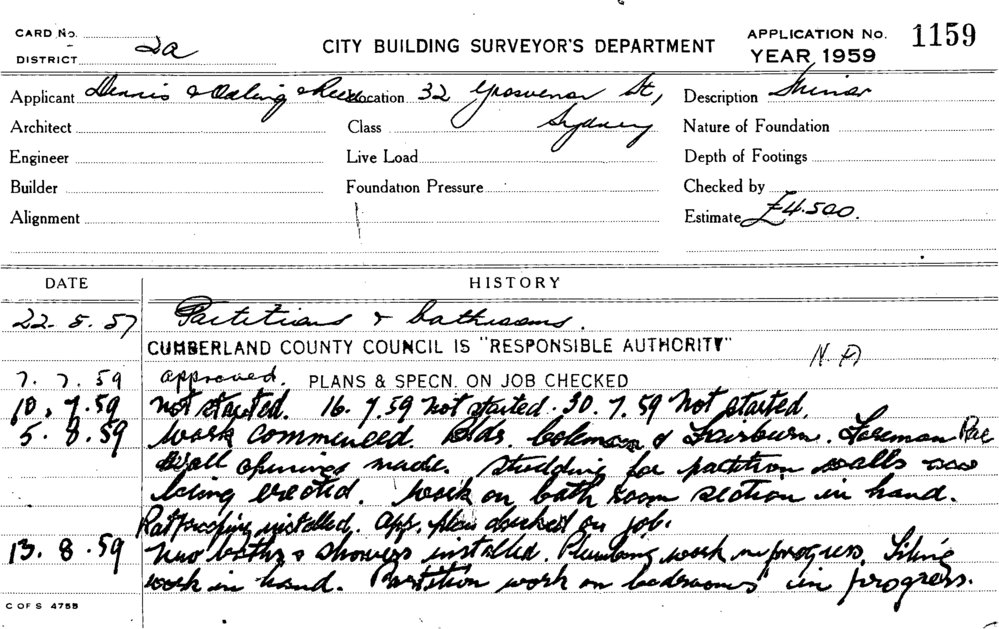 CARD No.
DISTRICT 2a
CITY BUILDING SURVEYOR'S DEPARTMENT
APPLICATION No. 1159
YEAR 1959
Applicant Dennis & Location 32 Grosvenor St,
Sydney
Description Minor
Architect
Class
Nature of Foundation
Engineer
Live Load
Depth of Footings
Builder
Foundation Pressure
Checked by
Alignment
Estimate £4.500.
DATE
HISTORY
22.5.57 Partitions & bathrooms.
CUMBERLAND COUNTY COUNCIL IS "RESPONSIBLE AUTHORITY"
7.7.59 approved. PLANS & SPECN. ON JOB CHECKED
10.7.59 not started. 16.7.59 not started. 30.7.59 not started.
5.8.59 work commenced. Bldr. Coleman & Fairburn. Foreman Rae
Wall openings made. Studding for partition walls now
being erected. Work on bath room section in hand.
Ratproofing installed. App. plan checked on job.
13.8.59 new baths & showers installed. Plumbing work in progress. Tiling
work in hand. Partition work on bedrooms in progress.
C OF S 475B